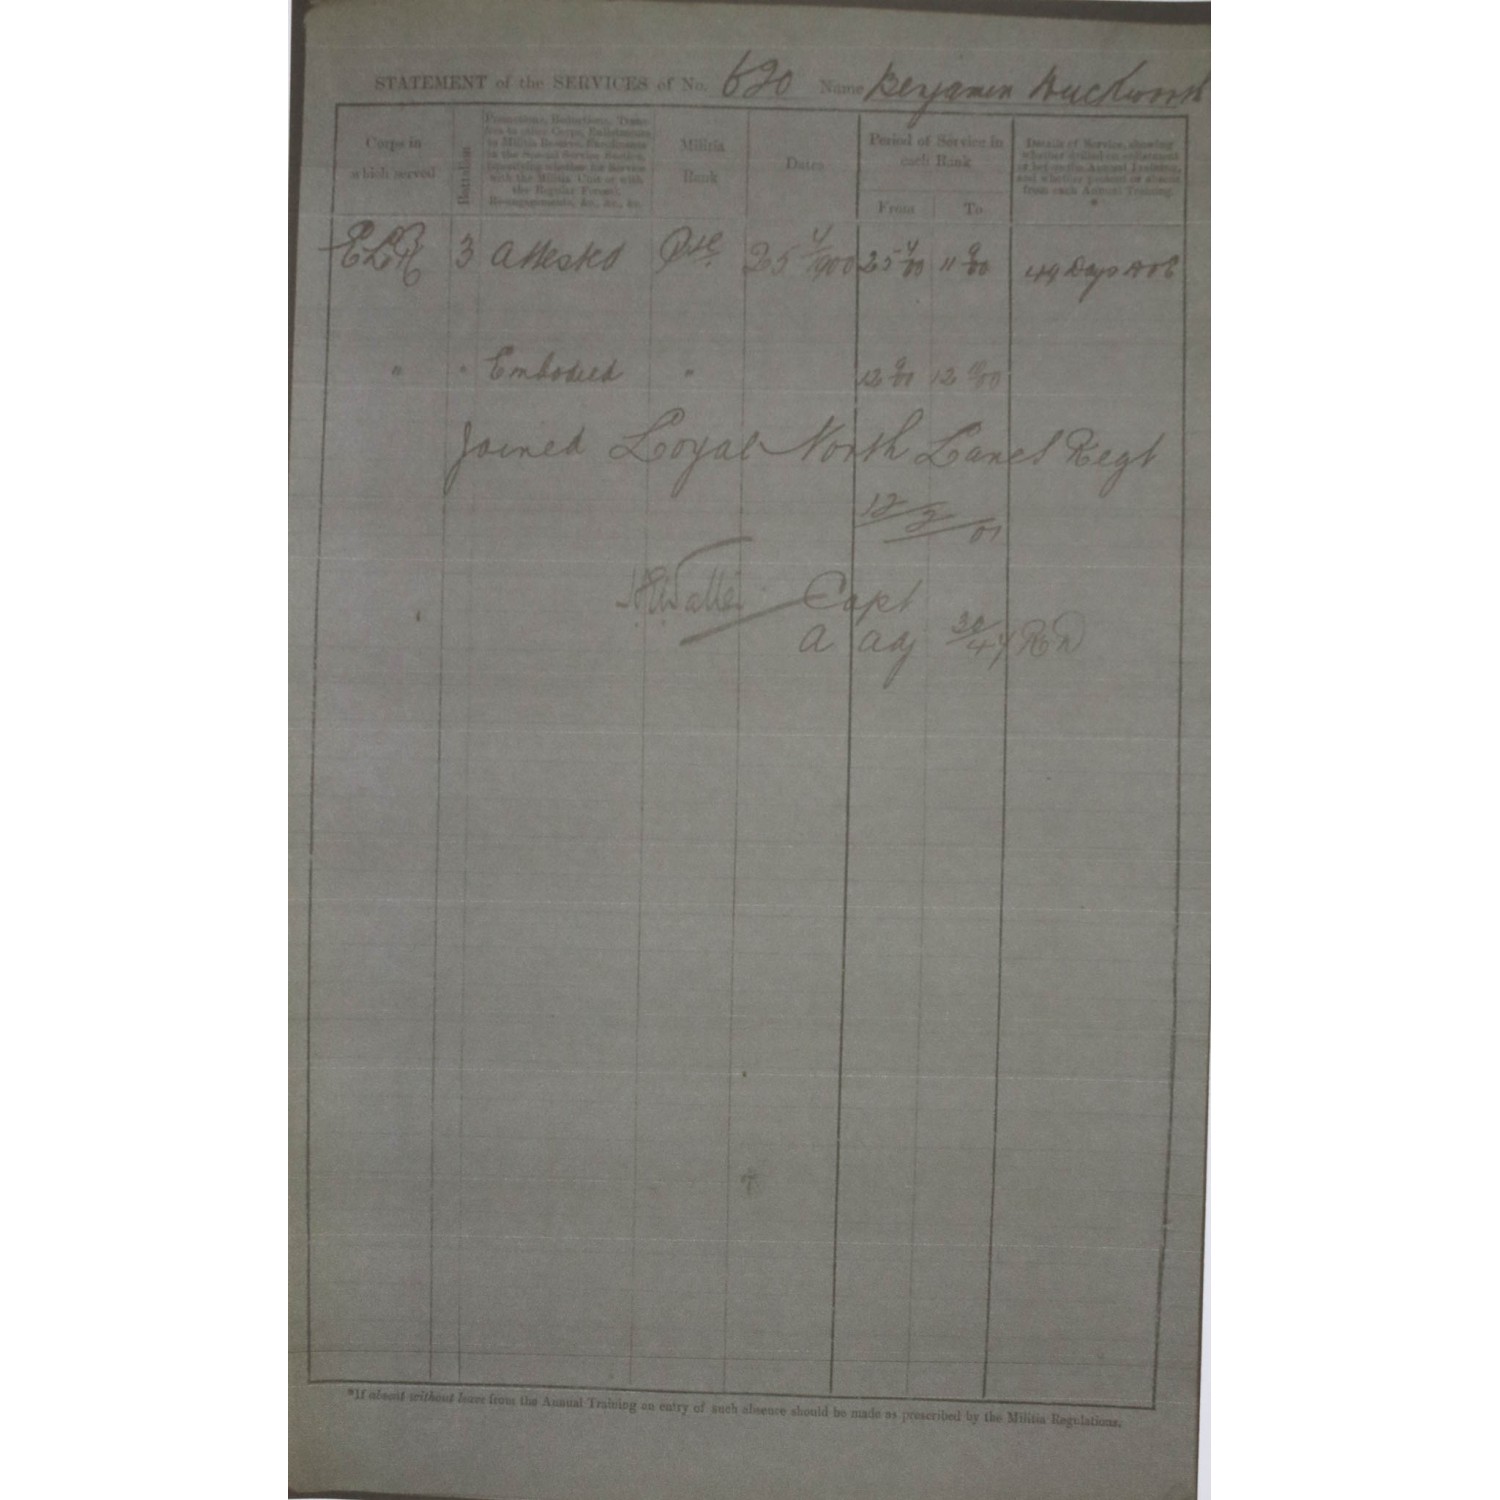 STATEMENT of the SERVICES of No. 620 Name Benjamin Duckworth
Corps in which served
Battalion
Promotions, Reductions, Transfers to other Corps, Enlistments to Militia Reserve, Enrolments in the Special Service Section, specifying whether for Service with the Militia Unit or with the Regular Forces, Re-engagements, &c., &c., &c.
Militia Rank
Dates
Period of Service in each Rank
From To
Details of Service, showing whether drilled on enlistment or before the Annual Training, and whether present or absent from each Annual Training.
*
ELR 3 Attested Pte 25 4/1900 25 4/00 11 9/00 49 Days D O E
" " Embodied " 12 12
Joined Loyal North Lancs Regt
12/3/01
Capt
A Adj 30/47 RD
*If absent without leave from the Annual Training an entry of such absence should be made as prescribed by the Militia Regulations.